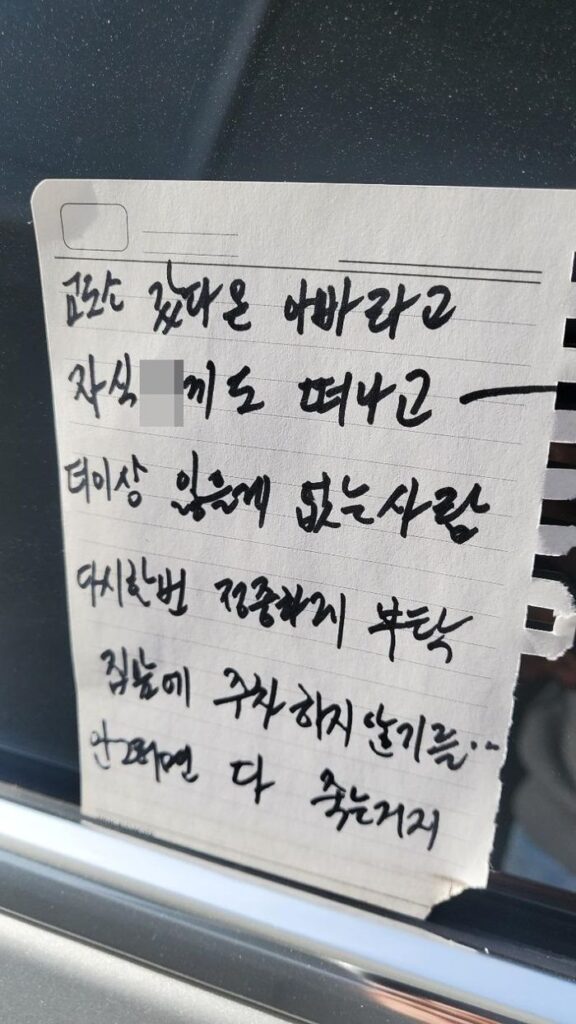 교도소 갔다온 아빠라고
자식 끼도 떠나고
더이상 잃을게 없는사람
다시한번 정중하게 부탁
집앞에 주차하지 않기를..
안그러면 다 죽는거지